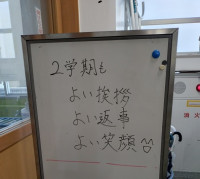 2学期も
よい挨拶
よい返事
よい笑顔
消火